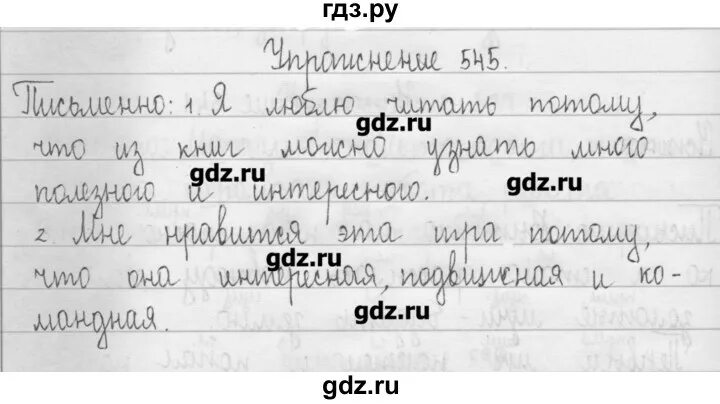 гдз.ру
Упражнение 545.
Письменно: 1. Я люблю читать потому,
gdz.ru
что из книг можно узнать много
gdz.ru gdz.ru
полезного и интересного.
2. Мне нравится эта игра потому,
gdz.ru
что она интересная, подвижная и ко-
gdz.ru
мандная.
gdz.ru